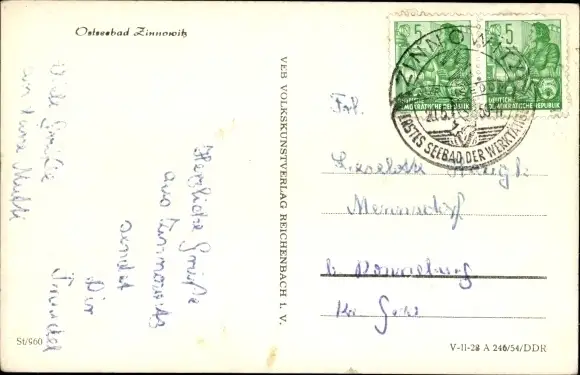 Ostseebad Zinnowitz
Viele Grüße
an Deine Mutti
Herzliche Grüße
aus Zinnowitz
sendet
Dir
St/960
VEB VOLKSKUNSTVERLAG REICHENBACH I. V.
5
5
DEUTSCHE
DEMOKRATISCHE REPUBLIK
DEUTSCHE
DEMOKRATISCHE REPUBLIK
ZINNOWITZ
ERSTES SEEBAD DER WERKTÄTIGEN
Frl.
Lieselotte
b/ Ronneburg
Krs. Gera
V-II-28 A 246/54/DDR